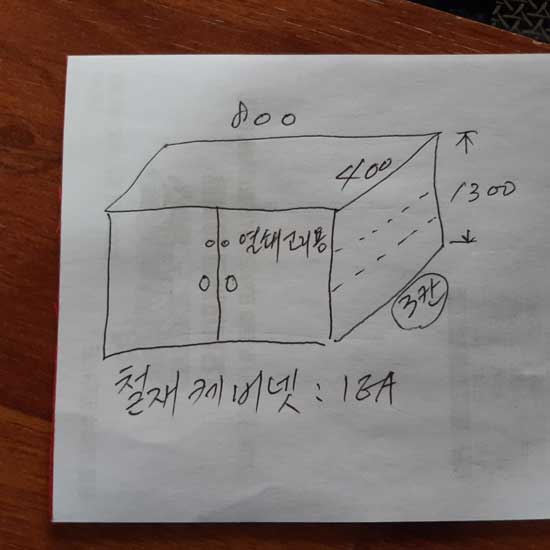 800
400
1300
열쇄고리용
3칸
철재케버넷 : 1EA